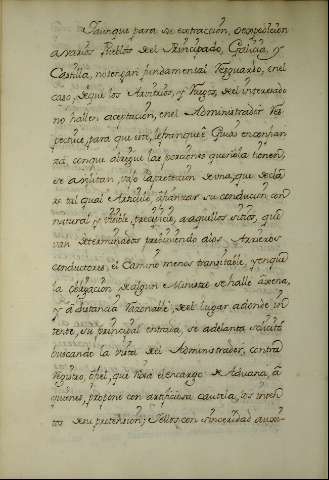 Yaunque para su extraccion, o expedicion
a varios Pueblos del Principado, Galicia, y
Castilla, no tengan fundamental resguardo, en el
caso, de que los Arvitrios, y traza, del interesado
no hallen aceptacion, en el Administrador Res-
pectivo, para que este, le franquee Guias en confian
za, conque dirige las porciones que solo tienen,
se ajustan, vajo la proteccion de una, que decla-
re tal qual Articulo, afianzar su conducion con
natural y visible, precisice, a aquellos sitios, que
van determinados previniendo a los Arrieros
conductores, el Camino menos transitable, y en que
la obligacion de algun Ministro se halle agena,
y a distancia razonable, del lugar adonde in
tente, su principal entrada, se adelanta solicito
buscando la vista del Administrador, contra
registro, ò fiel, que tiene el encargo de Aduana, à
quienes, propone con artificiosa cautela, los inten-
tos de su pretension; Y ellos, con sinceridad